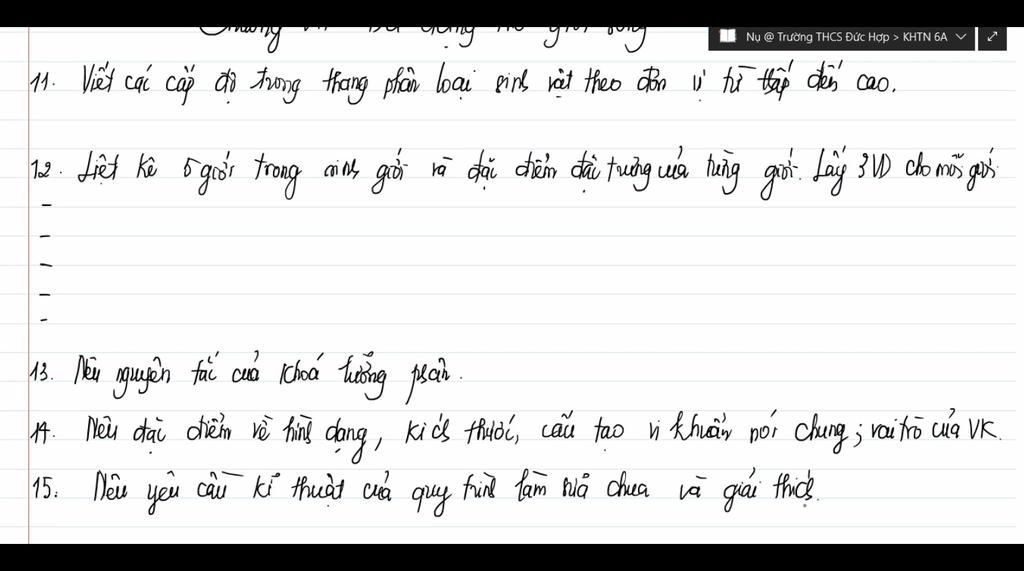 Chương VII Đa dạng thế giới sống
Nụ @ Trường THCS Đức Hợp > KHTN 6A
11. Viết các cấp độ trong thang phân loại sinh vật theo đơn vị từ thấp đến cao.
12. Liệt kê 5 giới trong sinh giới và đặc điểm đặc trưng của từng giới. Lấy 3 VD cho mỗi giới.
-
-
-
-
-
13. Nêu nguyên tắc của khoá lưỡng phân.
14. Nêu đặc điểm về hình dạng, kích thước, cấu tạo vi khuẩn nói chung; vai trò của VK.
15. Nêu yêu cầu kĩ thuật của quy trình làm sữa chua và giải thích.